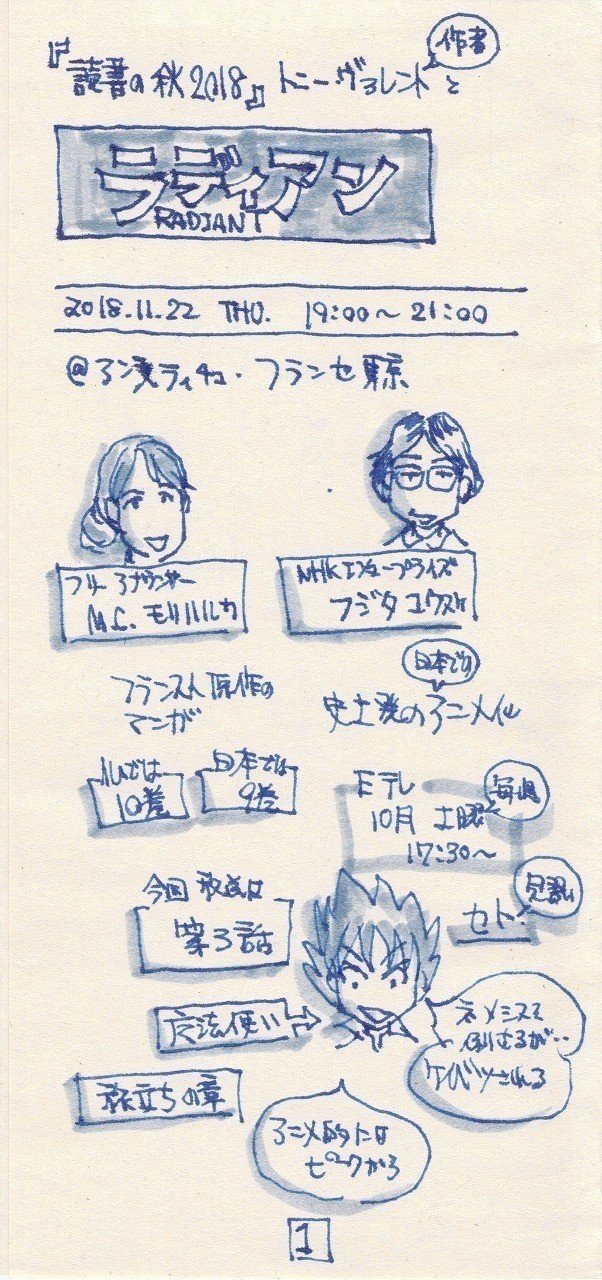 作者
『読書の秋2018』トニー・ヴァレントと
ラディアン
RADIANT
2018.11.22 THU. 19:00～21:00
@アンスティチュ・フランセ東京
フリーアナウンサー
M.C. モリハルカ
NHKエンタープライズ
フジタユウスケ
フランス人原作の
マンガ
日本では
史上発のアニメ化
仏では
10巻
日本では
9巻
Eテレ
毎週
10月 土曜
17:30～
今回放送は
第3話
セト
魔法使い
ネメシスを
倒せるが‥
ケイベツされる
旅立ちの章
アニメ的には
ピークかろ
1